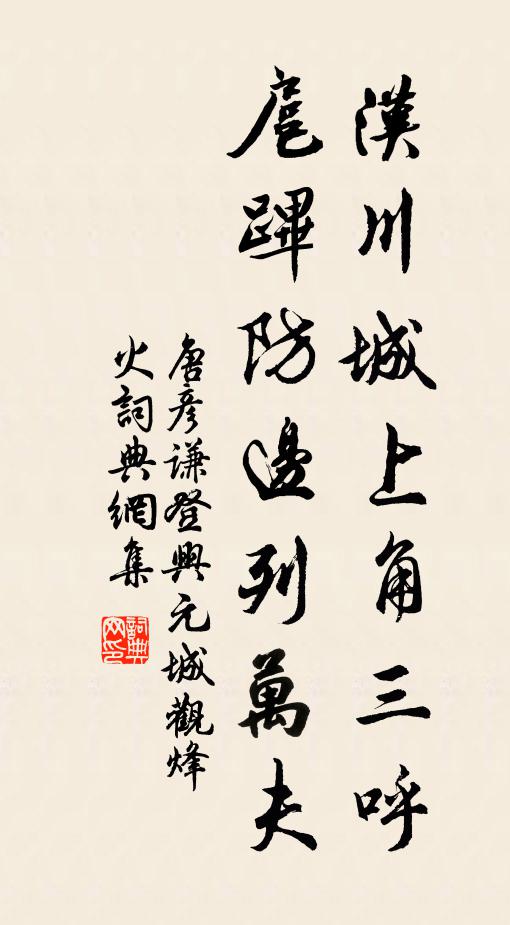 漢川城上角三呼
扈蹕防邊列萬夫
唐彥謙登興元城觀烽
火詞典網集
詞典网印